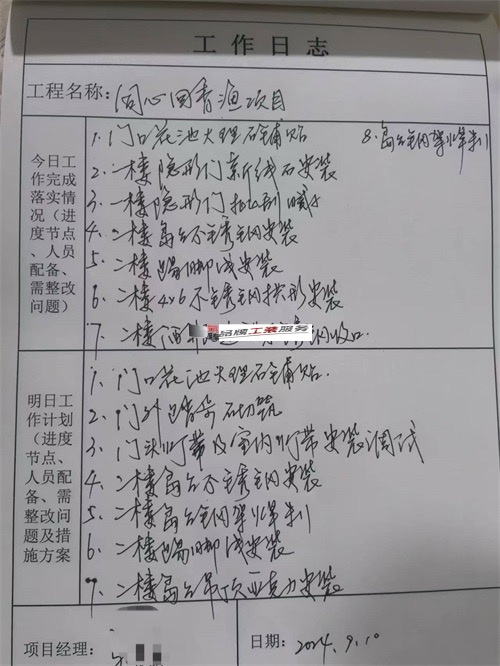 工作日志
工程名称: 同心回青渔项目
今日工作完成落实情况(进度节点、人员配备、需整改问题)
1. 门口花池大理石铺贴
8. 岛台钢架焊制
2. 一楼隐形门新线石安装
3. 一楼隐形门
4. 二楼岛台不锈钢安装
5. 二楼踢脚线安装
6. 二楼4×6不锈钢拱形安装
7. 二楼 钢收口
品牌工装服务
明日工作计划(进度节点、人员配备、需整改问题及措施方案
1. 门口花池大理石铺贴.
2. 门外 青石切筑
3. 门头灯带及室内灯带安装调试
4. 二楼岛台不锈钢安装
5. 二楼岛台钢架焊制
6. 二楼踢脚线安装
7. 二楼岛台吊顶亚克力安装
项目经理:
日期: 2024.9.10